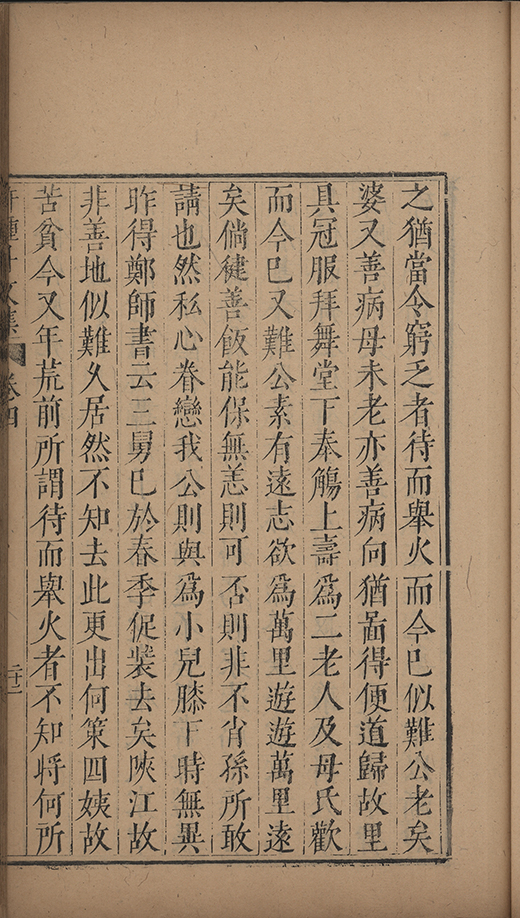 之猶當令窮乏者待而舉火而今已似難公老矣
婆又善病母未老亦善病向猶啚得便道歸故里
具冠服拜舞堂下奉觴上壽爲二老人及母氏歡
而今已又難公素有遠志欲爲萬里遊遊萬里遠
矣倘健善飯能保無恙則可否則非不肖孫所敢
請也然私心眷戀我公則與爲小兒膝下時無異
昨得鄭師書云三舅已於春季促裝去矣陝江故
非善地似難久居然不知去此更出何策四姨故
苦貧今又年荒前所謂待而舉火者不知將何所
文集 卷四 二十二